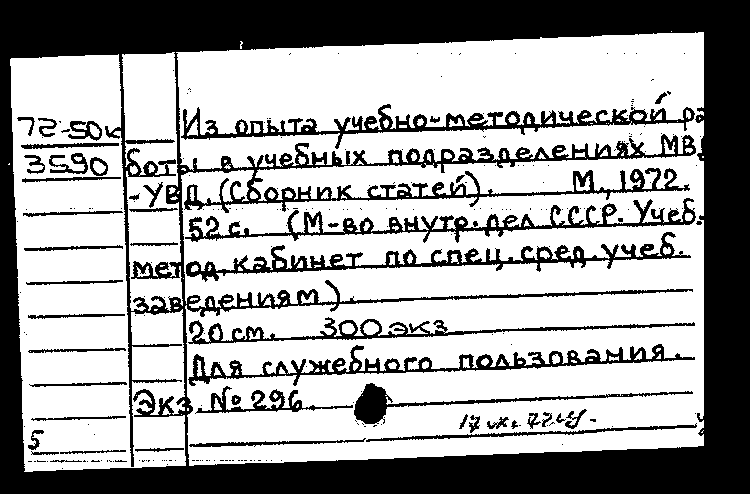 72-50к
3590
Из опыта учебно-методической ра
боты в учебных подразделениях МВД
-УВД. (Сборник статей). М., 1972.
52 с. (М-во внутр. дел СССР. Учеб.-
метод. кабинет по спец. сред. учеб.
заведениям).
20 см. 300 экз
Для служебного пользования.
Экз. № 296.
5